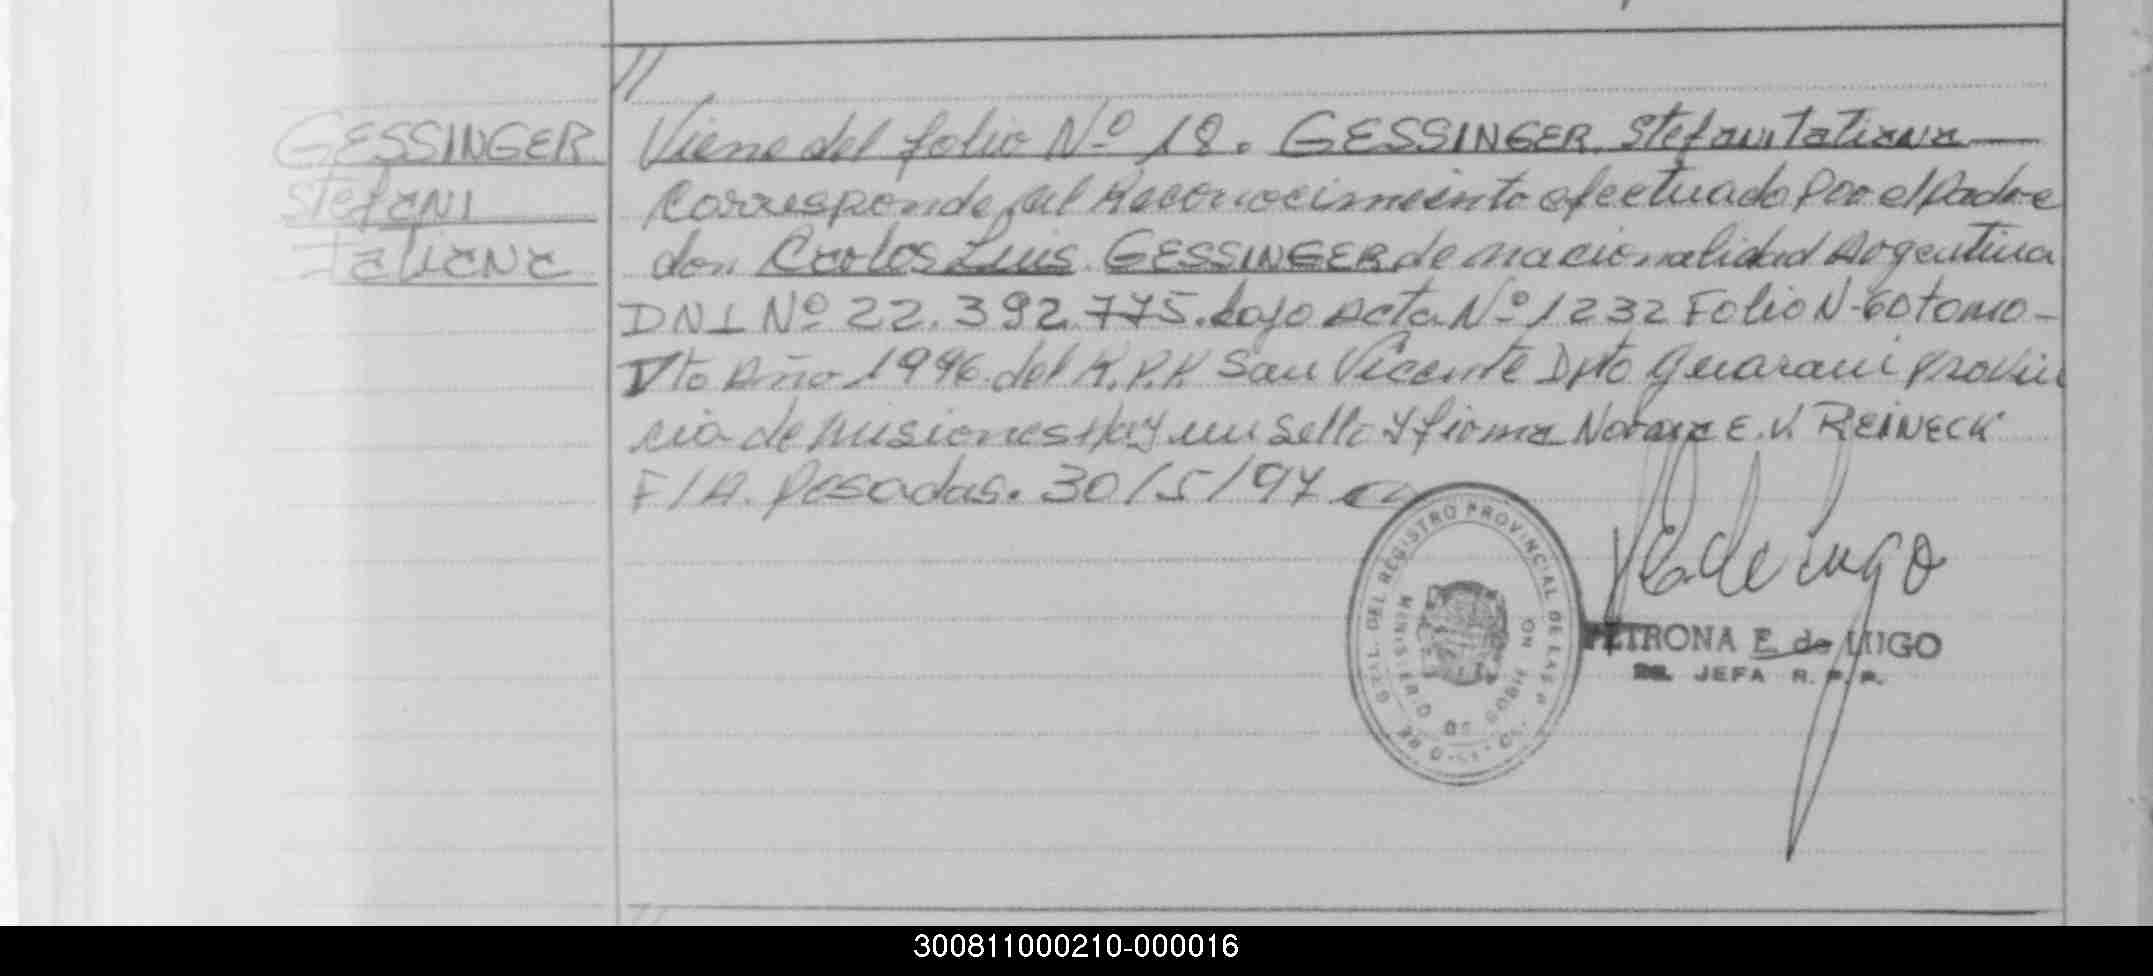 //
GESSINGER
Stefani
Tatiana
Viene del folio Nº 18. GESSINGER Stefani Tatiana
Corresponde al Reconocimiento efectuado por el padre
don Carlos Luis GESSINGER de nacionalidad Argentina
DNI Nº 22.392.775. bajo Acta Nº 1232 Folio N-60 tomo-
Vto Año 1996. del R.P.P. San Vicente Dpto Guarani provin
cia de Misiones Hay un sello y firma E. V. REINECK
F/A. Posadas. 30/5/97
GRAL. DEL REGISTRO PROVINCIAL DE LAS P
MINISTERIO DE GOBIERNO
PETRONA E. de LUGO
JEFA R. P. P.
//
300811000210-000016